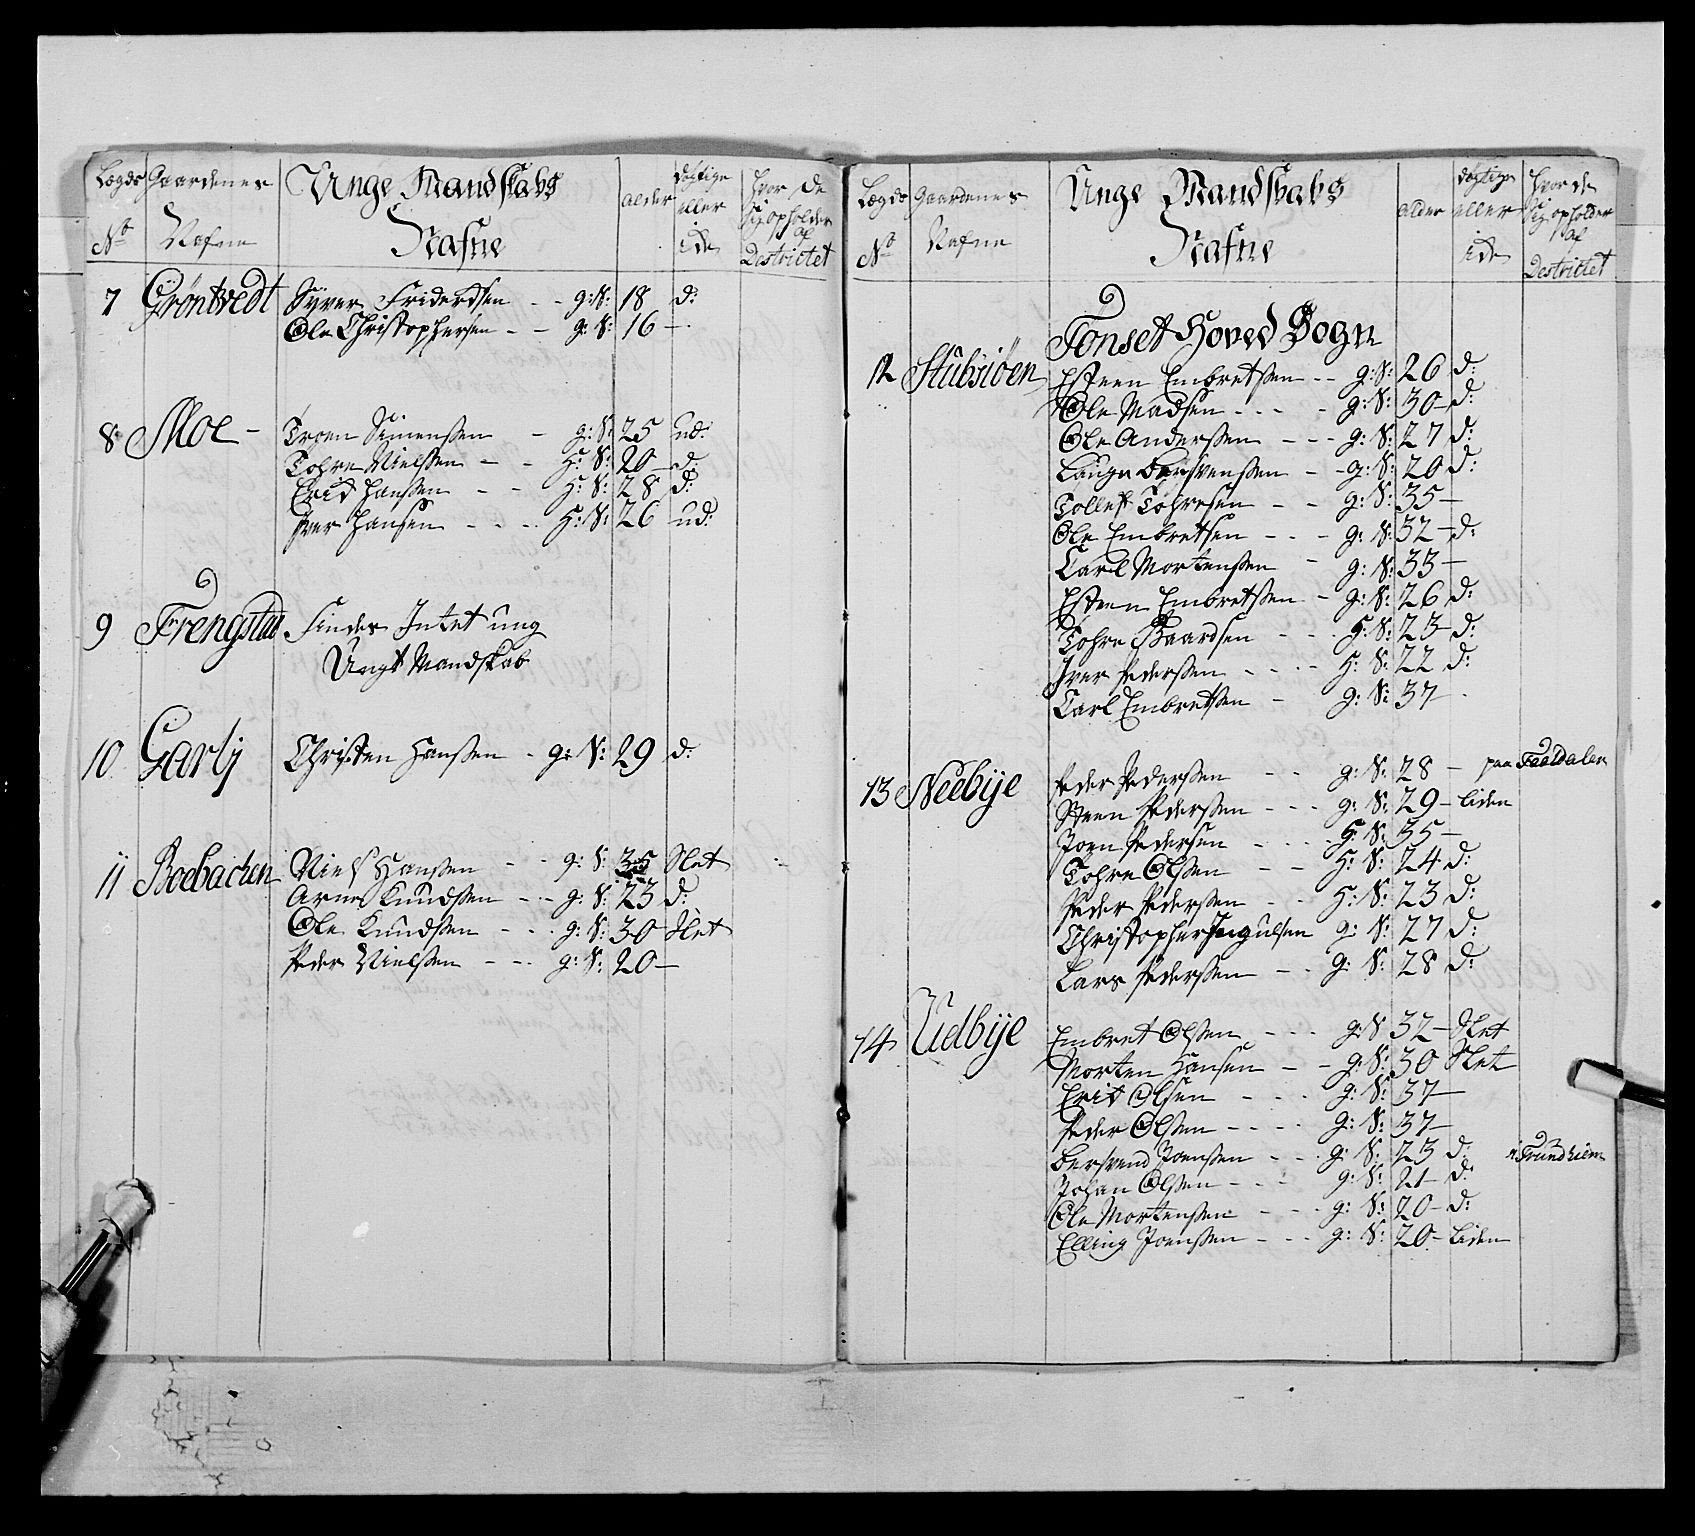 Lægds No Gaardenes Nafne Unge Mandskabs Nafne alder dygtige eller ide Hvor de Sig opholder af Destrictet
7 Gröntvedt Syver Fridericksen - - g: S: 18 d:
Ole Christophersen - - g: S: 16 -
8 Moe - Troen Simenssen - g: S: 25 ud:
Tohre Nielssen - - H: S: 20 - d:
Erick Hanssen - - H: S: 28 d:
Iver Hansen - - - H: S: 26 ud:
9 Frengstad Findes Intet ung
Ungt Mandskab
10 Garlj Christen Hanssen - g: S: 29 d:
11 Boebachen Niels Hanssen - - g: S: 35 Slet
Arne Knudssen - - g: S: 23 d:
Ole Knudssen - - - g: S: 30 Slet
Peder Nielssen - - - g: S: 20 -
Lægds No Gaardenes Nafne Unge Mandskabs Nafne alder dygtige eller ide Hvor de Sig opholder af Destrictet
Tonset Hoved Sogn
12 Stubsiöen Esteen Embretssen - - g: S: 26 d:
Ole Madsen - - - - g: S: 30 - d:
Ole Anderssen - - - g: S: 27 d:
Lauge Bersvenssen - - g: S: 20 d:
Tollef Tohresen - - g: S: 35 -
Ole Embretsen - - - g: S: 32 - d:
Carl Mortenssen - g: S: 33 -
Esteen Embretssen - g: S: 26 d:
Tohre Baardsen - - - H: S: 23 - d:
Iver Pederssen - - - - H: S: 22 d:
Carl Embretssen - g: S: 37 -
13 Neebije Peder Pederssen - - g: S: 28 - paa Faaldalen
Steen Pederssen - - - g: S: 29 - liden
Joen Pedersen - - - - H: S: 35 -
Tohre Olssen - - H: S: 24 d:
Peder Pederssen - - H: S: 23 d:
Christopher Ingulsen g: S: 27 d:
Lars Pederssen - - g: S: 28 d:
14 Udbije Embret Olssen - - - g: S: 32 - Slet
Morten Hansen - - g: S: 30 Slet
Erick Olsen - - - g: S: 37 -
Peder Olssen - - - - g: S: 37 -
Bersvend Joenssen - - - g: S: 23 d: i Trundhiem
Johan Olssen - - - g: S: 21 - d:
Ole Mortenssen - - - g: S: 20 - d:
Elling Joenssen - - - g: S: 20 - liden